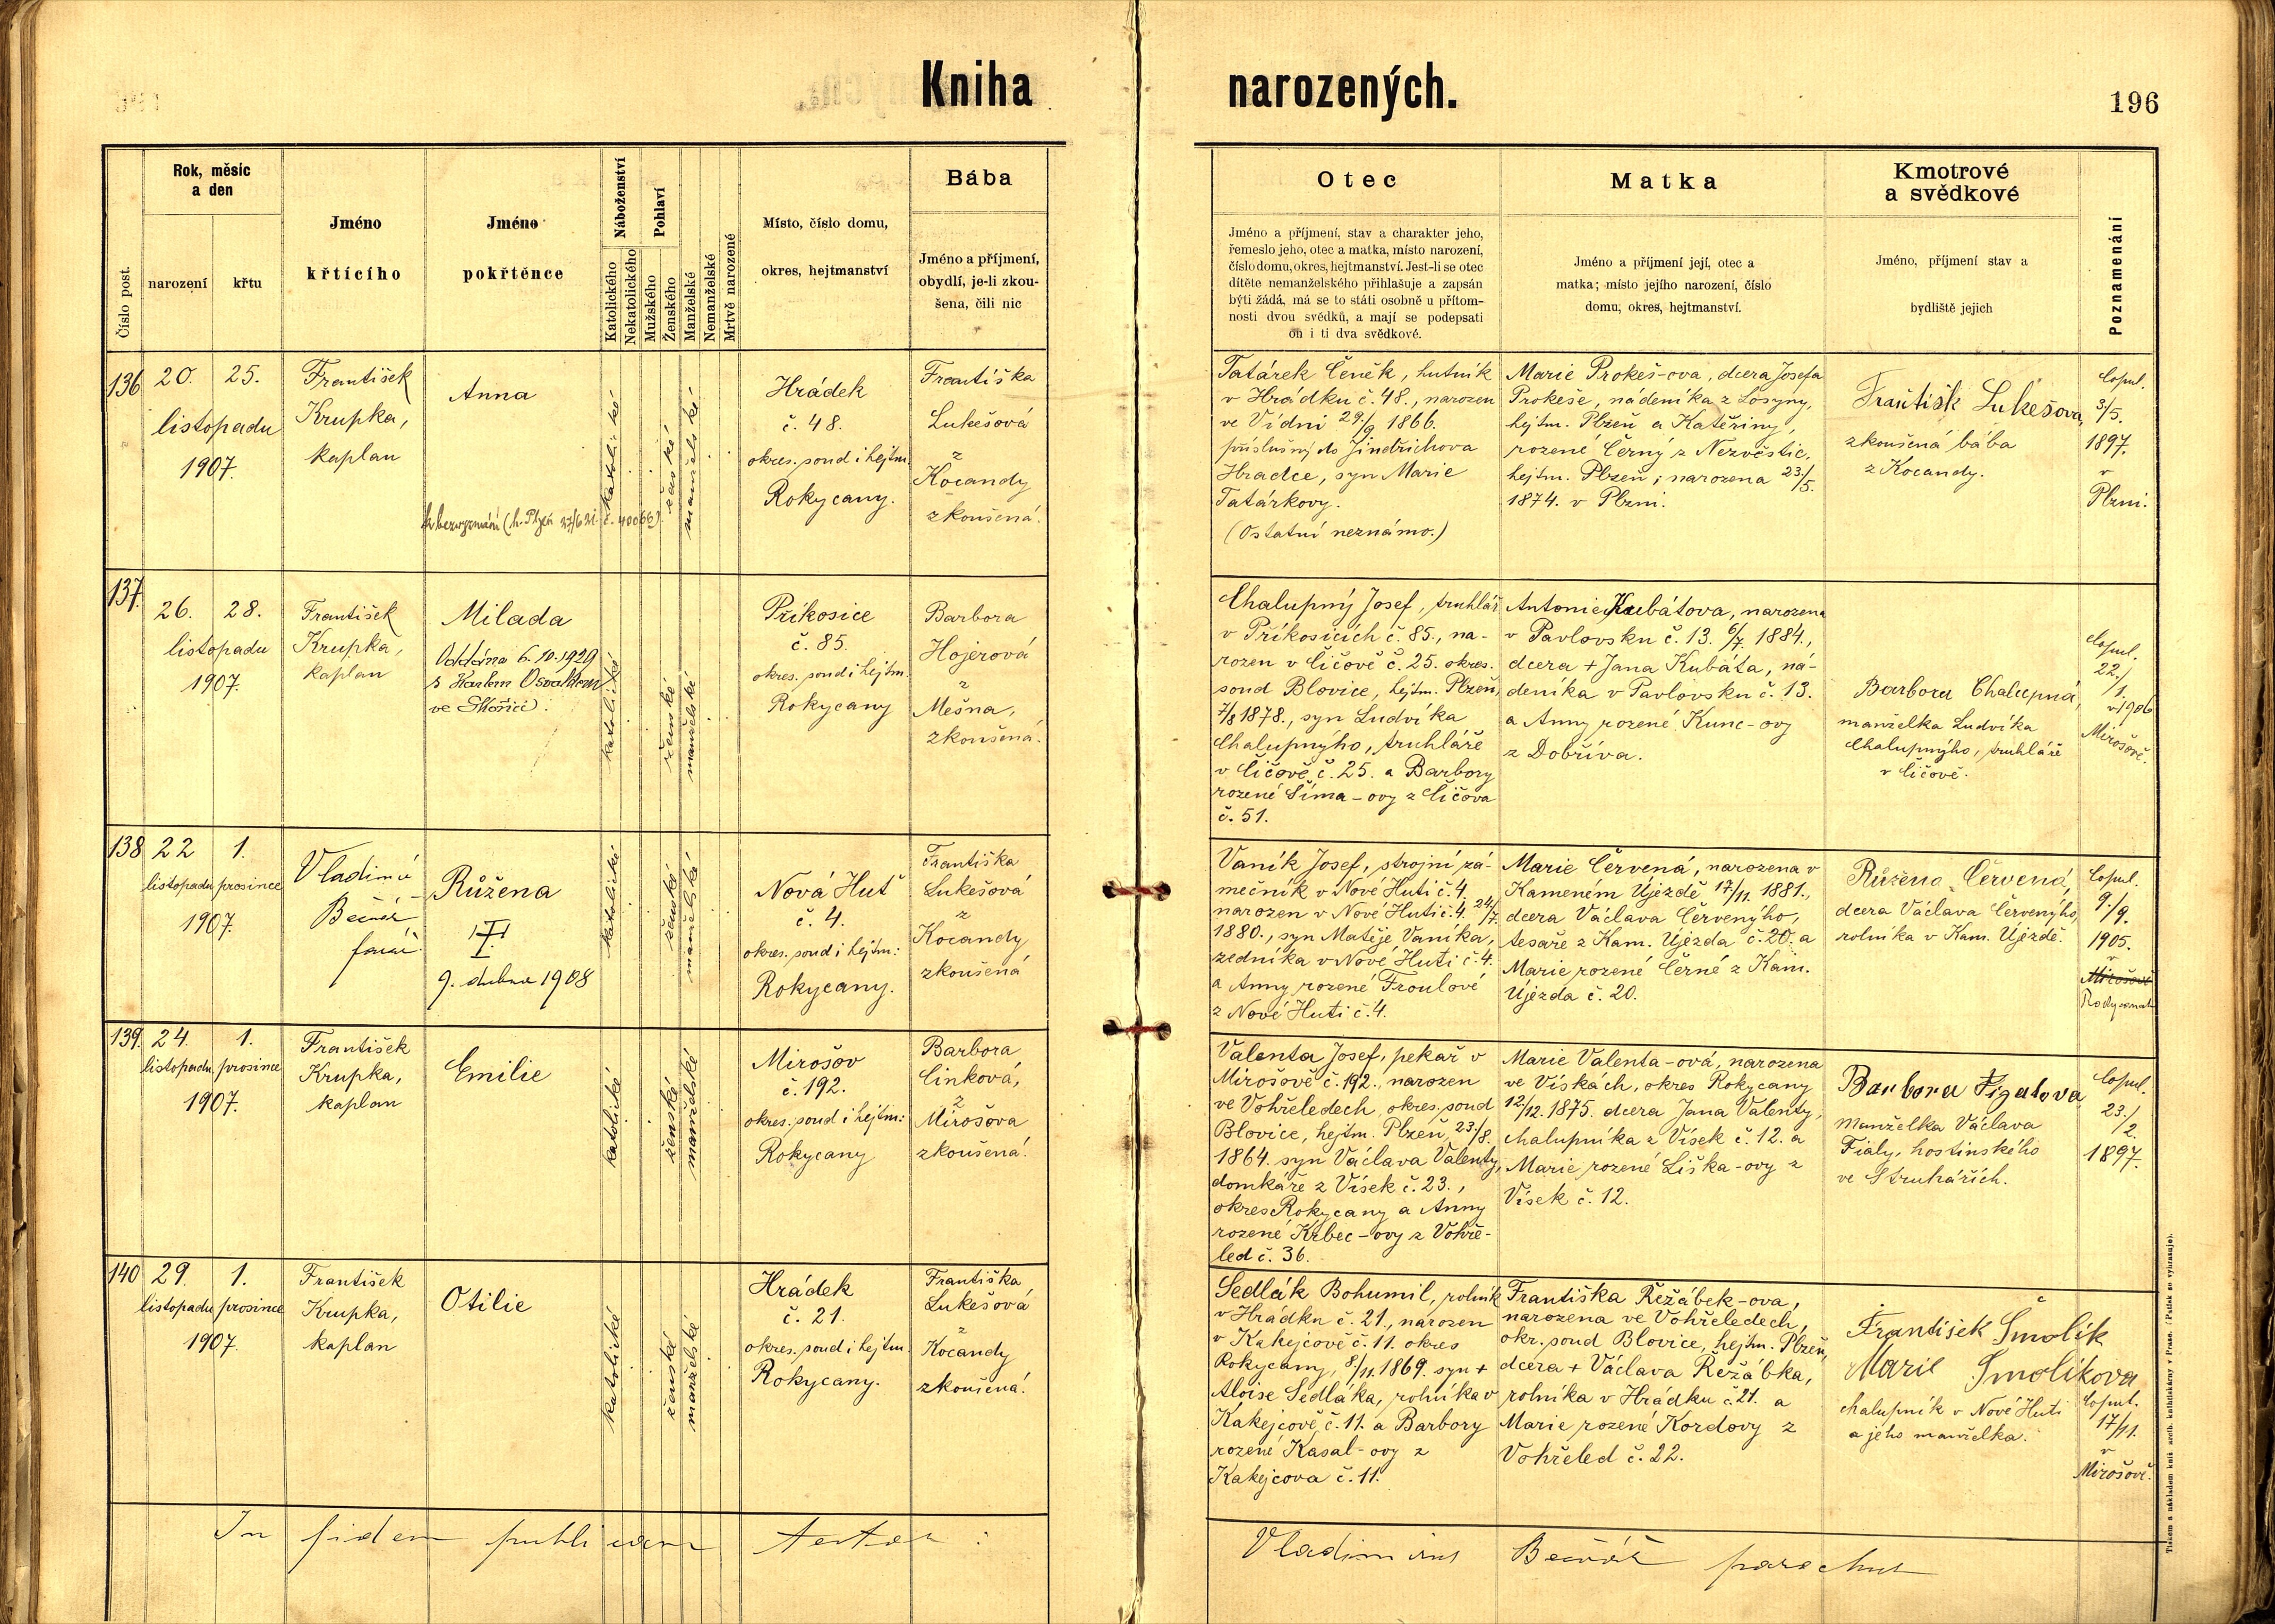 Kniha narozených.
196
Číslo post.
Rok, měsíc
a den
narození
křtu
Jméno
křtícího
Jméno
pokřtěnce
Náboženství
Katolického
Nekatolického
Pohlaví
Mužského
Ženského
Manželské
Nemanželské
Mrtvě narozené
Místo, číslo domu,
okres, hejtmanství
Bába
Jméno a příjmení,
obydlí, je-li zkou-
šena, čili nic
Otec
Jméno a příjmení, stav a charakter jeho,
řemeslo jeho, otec a matka, místo narození,
číslo domu, okres, hejtmanství. Jest-li se otec
dítěte nemanželského přihlašuje a zapsán
býti žádá, má se to státi osobně u přítom-
nosti dvou svědků, a mají se podepsati
on i ti dva svědkové.
Matka
Jméno a příjmení její, otec a
matka; místo jejího narození, číslo
domu, okres, hejtmanství.
Kmotrové
a svědkové
Jméno, příjmení stav a
bydliště jejich
Poznamenání
136
20. 25.
listopadu
1907.
František
Krupka,
kaplan
Anna
katolické
ženské
manželské
Hrádek
č. 48.
okres. soud i hejtm.
Rokycany.
Františka
Lukešová
z
Kocandy
zkoušená.
Tatárek Čeněk, hutník
v Hrádku č. 48., narozen
ve Vídni 29/9 1866.
příslušný do Jindřichova
Hradce, syn Marie
Tatárkovy.
(Ostatní neznámo.)
Marie Prokeš-ova, dcera Josefa
Prokeše, nádeníka z Losyny,
hejtm. Plzeň a Kateřiny,
rozené Černý z Nezvěstic,
hejtm. Plzeň; narozena 23./5.
1874. v Plzni.
Františk Lukešova,
zkoušená bába
z Kocandy.
Copul.
3/5.
1897.
v
Plzni.
137.
26. 28.
listopadu
1907.
František
Krupka,
kaplan
Milada
Oddána 6.10.1929
s Karlem Osvaldem
ve Skořici.
katolické
ženské
manželské
Příkosice
č. 85.
okres. soud i hejtm.
Rokycany
Barbora
Hojerová
z
Mešna,
zkoušená.
Chalupný Josef, truhlář
v Příkosicích č. 85., na-
rozen v Čičově č. 25. okres.
soud Blovice, hejtm. Plzeň,
7/8 1878., syn Ludvíka
Chalupnýho, truhláře
v Čičově č. 25. a Barbory
rozené Šíma-ovy z Čičova
č. 51.
Antonie Kubátova, narozena
v Pavlovsku č. 13. 6/7. 1884.,
dcera + Jana Kubáta, ná-
deníka v Pavlovsku č. 13.
a Anny rozené Kunc-ovy
z Dobříva.
Barbora Chalupná,
manželka Ludvíka
Chalupnýho, truhláře
v Čičově.
Copul.
22./1.
1906
v
Mirošově.
138
22 1.
listopadu prosince
1907.
Vladimír
Bečvář
farář
Růžena
9. dubna 1908
katolické
ženské
manželské
Nová Huť
č. 4.
okres. soud i hejtm:
Rokycany.
Františka
Lukešová
z
Kocandy
zkoušená
Vaník Josef, strojní zá-
mečník v Nové Huti č. 4.
narozen v Nové Huti č. 4. 24/7.
1880., syn Matěje Vaníka,
zedníka v Nové Huti č. 4.
a Anny rozené Froulové
z Nové Huti č. 4.
Marie Červená, narozena v
Kameném Újezdě 17/11. 1881.,
dcera Václava Červenýho,
tesaře z Kam. Újezda č. 20. a
Marie rozené Černé z Kam.
Újezda č. 20.
Růžena Červená,
dcera Václava Červenýho,
rolníka v Kam. Újezdě.
Copul.
9./9.
1905.
v
Mirošově
139.
24. 1.
listopadu prosince
1907.
František
Krupka,
kaplan
Emilie
katolické
ženské
manželské
Mirošov
č. 192.
okres. soud i hejtm:
Rokycany
Barbora
Cinková,
z
Mirošova
zkoušená.
Valenta Josef, pekař v
Mirošově č. 192., narozen
ve Vohřeledech, okres. soud
Blovice, hejtm. Plzeň, 23./8.
1864. syn Václava Valenty,
domkáře z Vísek č. 23.,
okres Rokycany a Anny
rozené Krbec-ovy z Vohře-
led č. 36.
Marie Valenta-ová, narozena
ve Vískách, okres Rokycany
12/12. 1875. dcera Jana Valenty,
chalupníka z Vísek č. 12. a
Marie rozené Liška-ovy z
Vísek č. 12.
Barbora
manželka Václava
Fialy, hostinského
ve Struhářích.
Copul.
23./2.
1897.
140
29. 1.
listopadu prosince
1907.
František
Krupka,
kaplan
Otilie
katolické
ženské
manželské
Hrádek
č. 21.
okres. soud i hejtm
Rokycany.
Františka
Lukešová
z
Kocandy
zkoušená.
Sedlák Bohumil, rolník
v Hrádku č. 21., narozen
v Kakejcově č. 11. okres
Rokycany, 8/11. 1869. syn +
Aloise Sedláka, rolníka v
Kakejcově č. 11. a Barbory
rozené Kasal-ovy z
Kakejcova č. 11.
Františka Řežábek-ova,
narozena ve Vohřeledech,
okr. soud Blovice, hejtm. Plzeň,
dcera + Václava Řežábka,
rolníka v Hrádku č. 21. a
Marie rozené Kordovy z
Vohřeled č. 22.
František Šmolík
Marie Smolíkova
chalupník v Nové Huti
a jeho manželka.
Copul.
17/11.
v
Mirošově.
In fidem publicam testor:
Vladimirus Bečvář parochus
Tiskem a nákladem kníž. arcib. knihtiskárny v Praze. (Padělek se vyhrazuje).